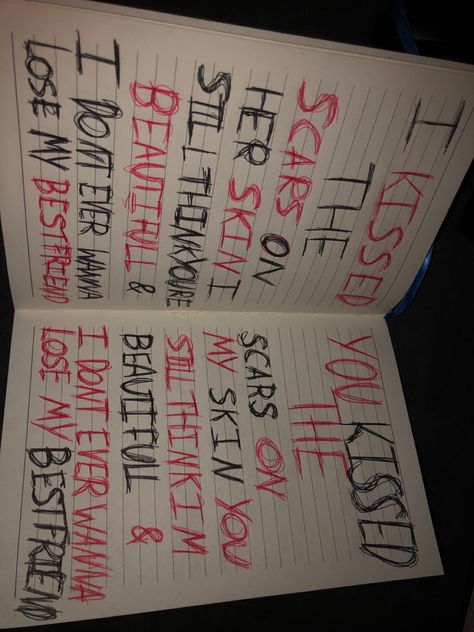 I KISSED
THE
SCARS ON
HER SKIN I
STILL THINK YOURE
BEAUTIFULL &
I DONT EVER WANNA
LOSE MY BESTFRIEND
YOU KISSED
THE
SCARS ON
MY SKIN YOU
STILL THINK IM
BEAUTIFUL &
I DONT EVER WANNA
LOSE MY BESTFRIEND